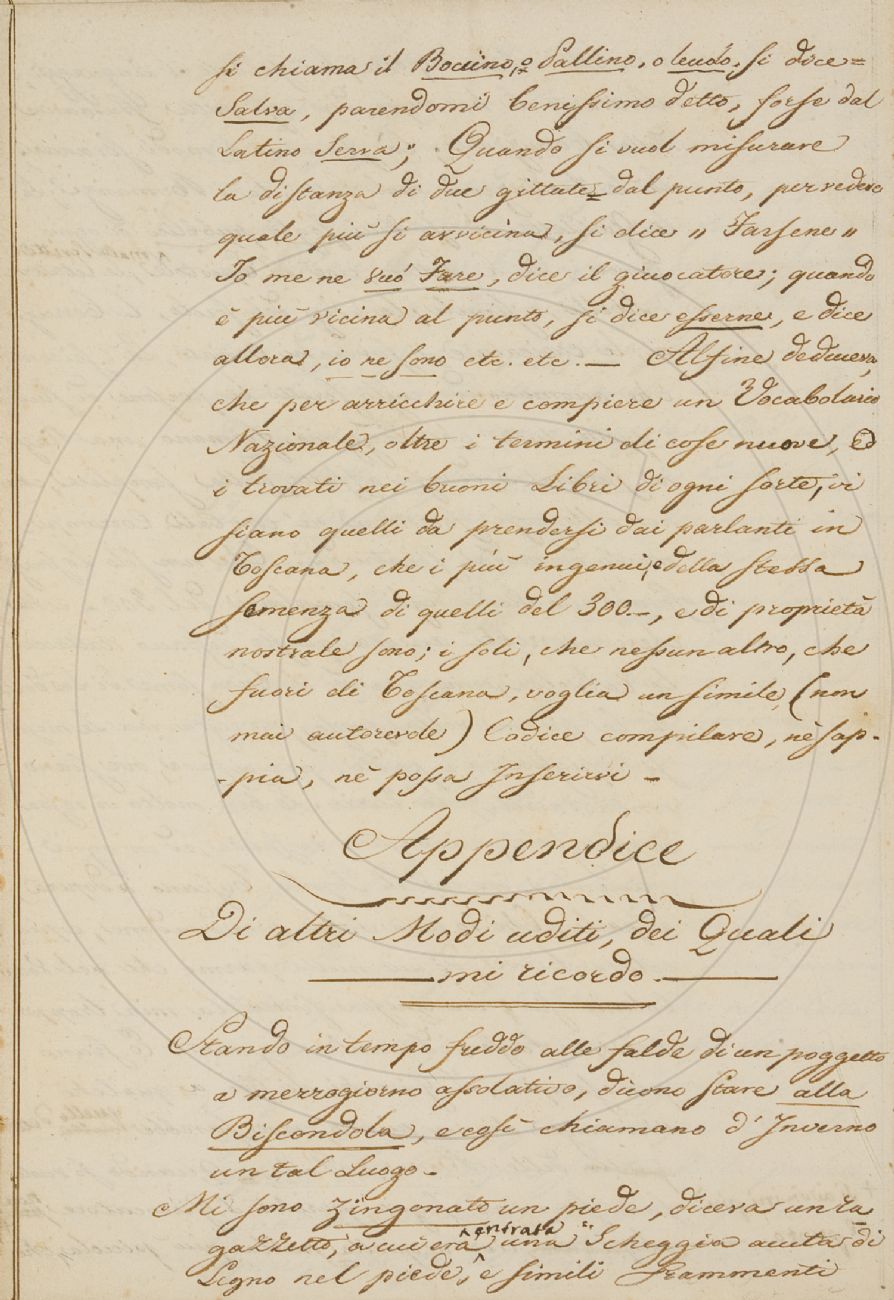 si chiama il Boccino, o Pallino, o leudo, si dice=
Salva, parendomi benissimo detto, forse dal
Latino Serva; Quando si vuol misurare
la distanza di due gittate dal punto, per vedere
quale più si avvicina, si dice „ Farsene „
Io me ne vuó Fare, dice il giuocatore; quando
è più vicina al punto, si dice esserne, e dice
allora, io ne sono etc. etc. — Alfine deduceva,
che per arricchire e compiere un Vocabolario
Nazionale, oltre i termini di cose nuove, ed
i trovati nei buoni Libri di ogni sorte, vi
siano quelli da prendersi dai parlanti in
Toscana, che i più ingenui, e della stessa
semenza di quelli del 300—, e di proprietà
nostrale sono; i soli, che nessun altro, che
fuori di Toscana, voglia un simile (non
mai autorevole) Codice compilare, nè sap-
-pia, nè possa Inserirvi —
Appendice
Di altri Modi uditi, dei Quali
mi ricordo.
Stando in tempo freddo alle falde di un poggetto
a mezzogiorno assolativo, dicono stare alla
Biscondola, e così chiamano d'Inverno
un tal Luogo —
Mi sono zingonato un piede, diceva un ra
gazzetto, a cui era entrata una Scheggia acuta di
Legno nel piede, e simili Frammenti